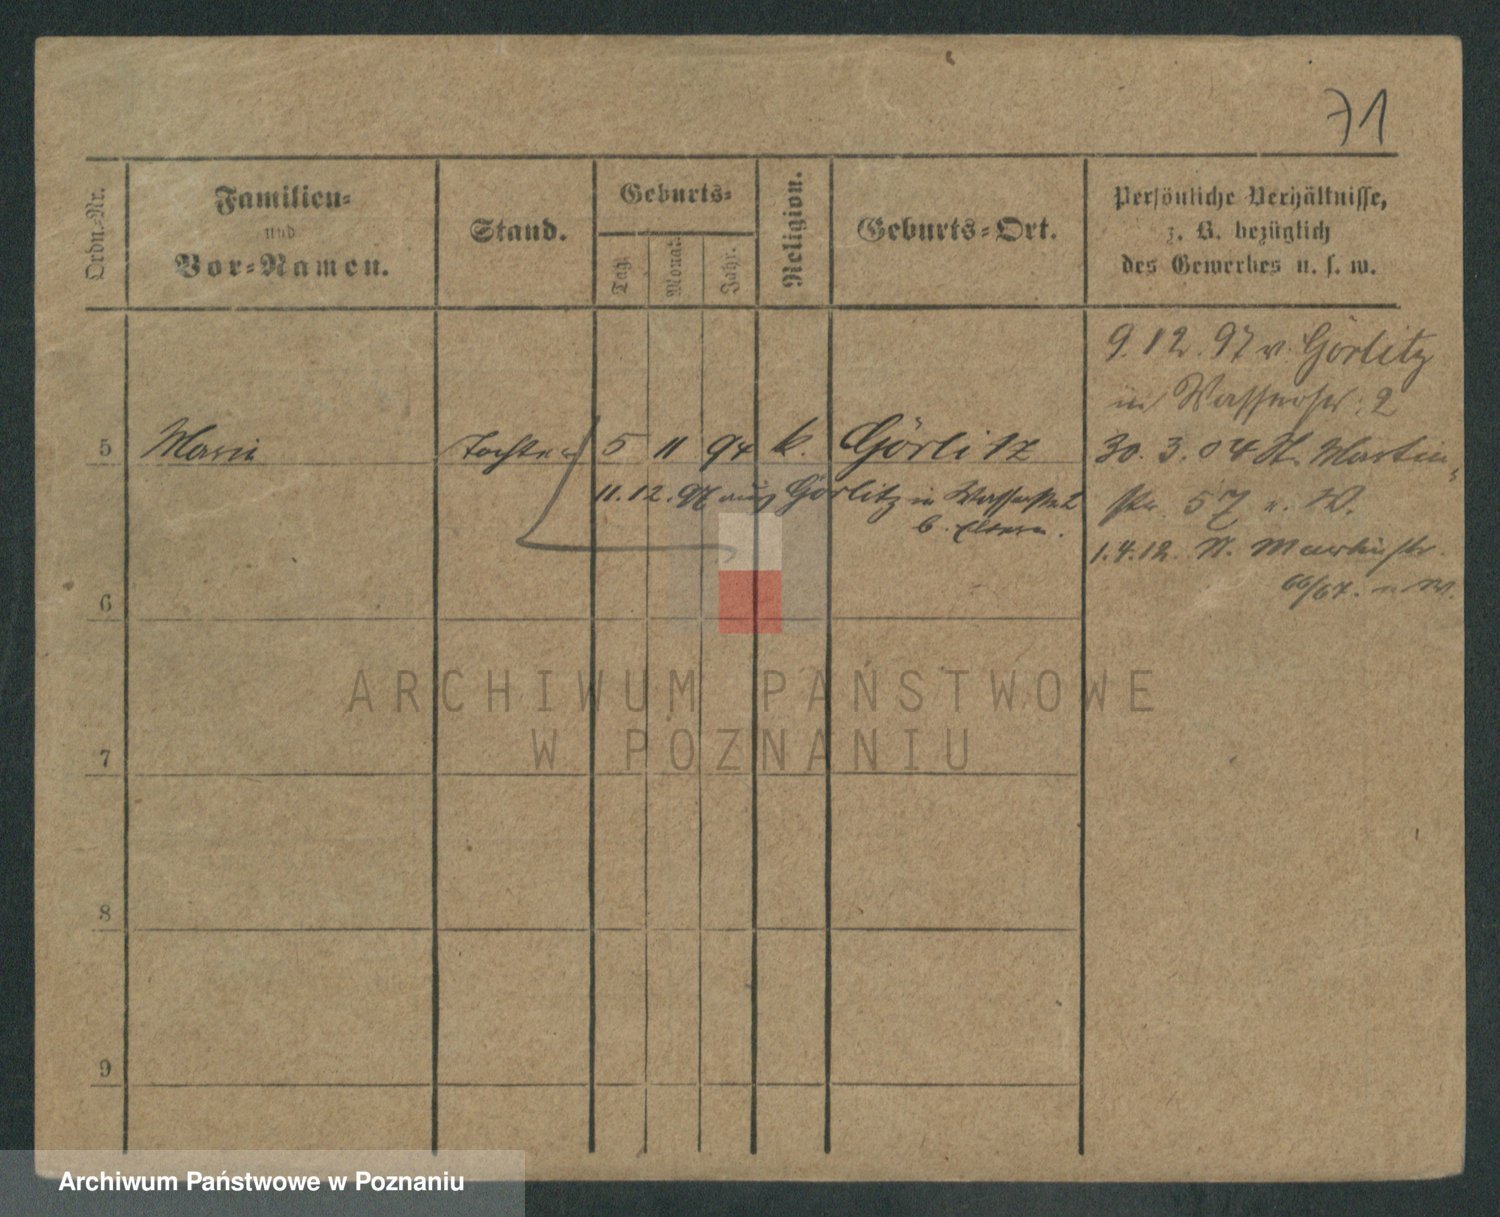 71
Ordn.-Nr.
Familien-
und
Vor-Namen.
Stand.
Geburts-
Tag.
Monat.
Jahr.
Religion.
Geburts-Ort.
Persönliche Verhältnisse,
z. B. bezüglich
des Gewerbes u. s. w.
9.12.97 v. Görlitz
in Wasserstr. 2
5 Marie Tochter 5 11 94 k. Görlitz
30.3.04 St. Martin-
11.12.97 aus Görlitz in Wasserstr. 2
str. 57 n. W.
b. Eltern.
1.4.12. St. Martinstr.
66/67. n. W.
6
ARCHIWUM PAŃSTWOWE
W POZNANIU
7
8
9
Archiwum Państwowe w Poznaniu